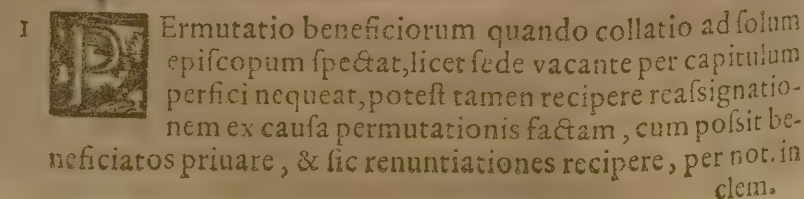 1 PErmutatio beneficiorum quando collatio ad ſolum
epiſcopum ſpectat, licet ſede vacante per capitulum
perfici nequeat, poteſt tamen recipere reaſsignatio-
nem ex cauſa permutationis factam, cum poſsit be-
neficiatos priuare, & ſic renuntiationes recipere, per not. in
clem.